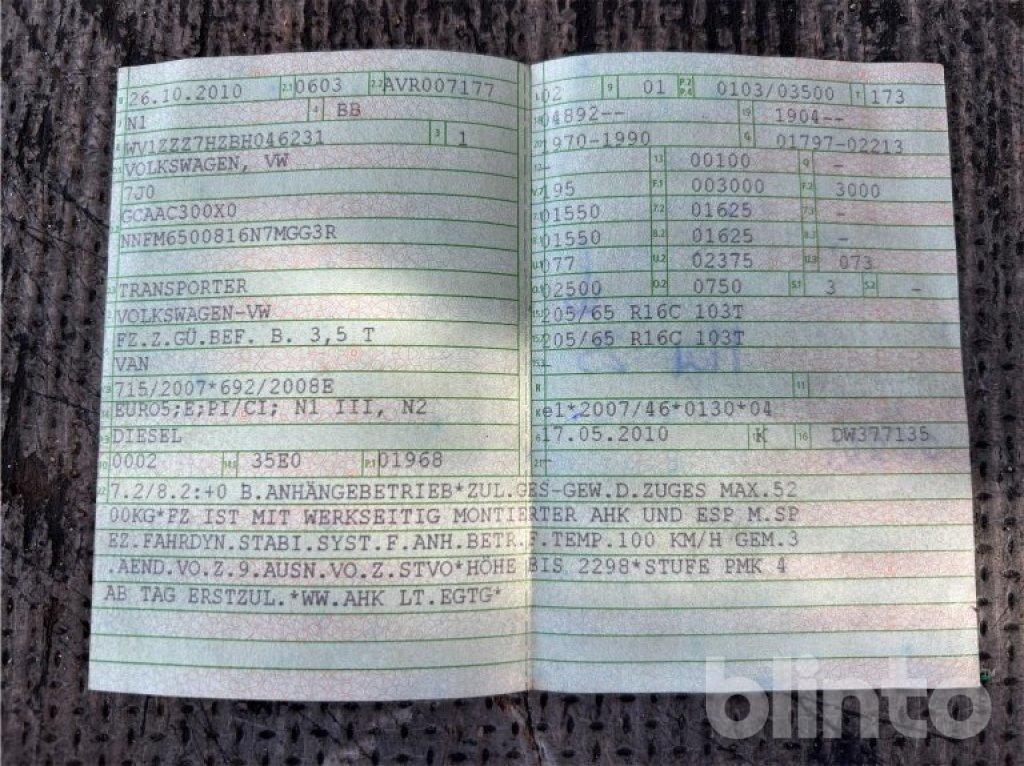 B 26.10.2010 2.1 0603 2.2 AVR007177
J N1 4 BB
E WV1ZZZ7HZBH046231 3 1
D.1 VOLKSWAGEN, VW
7J0
GCAAC300X0
NNFM6500816N7MGG3R
TRANSPORTER
VOLKSWAGEN-VW
FZ.Z.GÜ.BEF. B. 3,5 T
VAN
715/2007*692/2008E
EURO5;E;PI/CI; N1 III, N2
DIESEL
10 0002 14.1 35E0 P.1 01968
22 7.2/8.2:+0 B.ANHÄNGEBETRIEB*ZUL.GES-GEW.D.ZUGES MAX.52
00KG*FZ IST MIT WERKSEITIG MONTIERTER AHK UND ESP M.SP
EZ.FAHRDYN.STABI.SYST.F.ANH.BETR.F.TEMP.100 KM/H GEM.3
.AEND.VO.Z.9.AUSN.VO.Z.STVO*HÖHE BIS 2298*STUFE PMK 4
AB TAG ERSTZUL.*WW.AHK LT.EGTG*
L 02 9 01 P.2 P.4 0103/03500 T 173
18 04892-- 19 1904--
20 1970-1990 G 01797-02213
12 - 13 00100 Q -
V.7 195 F.1 003000 F.2 3000
7.1 01550 7.2 01625 7.3 -
8.1 01550 8.2 01625 8.3 -
U.1 077 U.2 02375 U.3 073
O.1 02500 O.2 0750 S.1 3 S.2 -
15.1 205/65 R16C 103T
15.2 205/65 R16C 103T
15.3 -
R 11
K e1*2007/46*0130*04
6 17.05.2010 17 K 16 DW377135
21 -
blinto